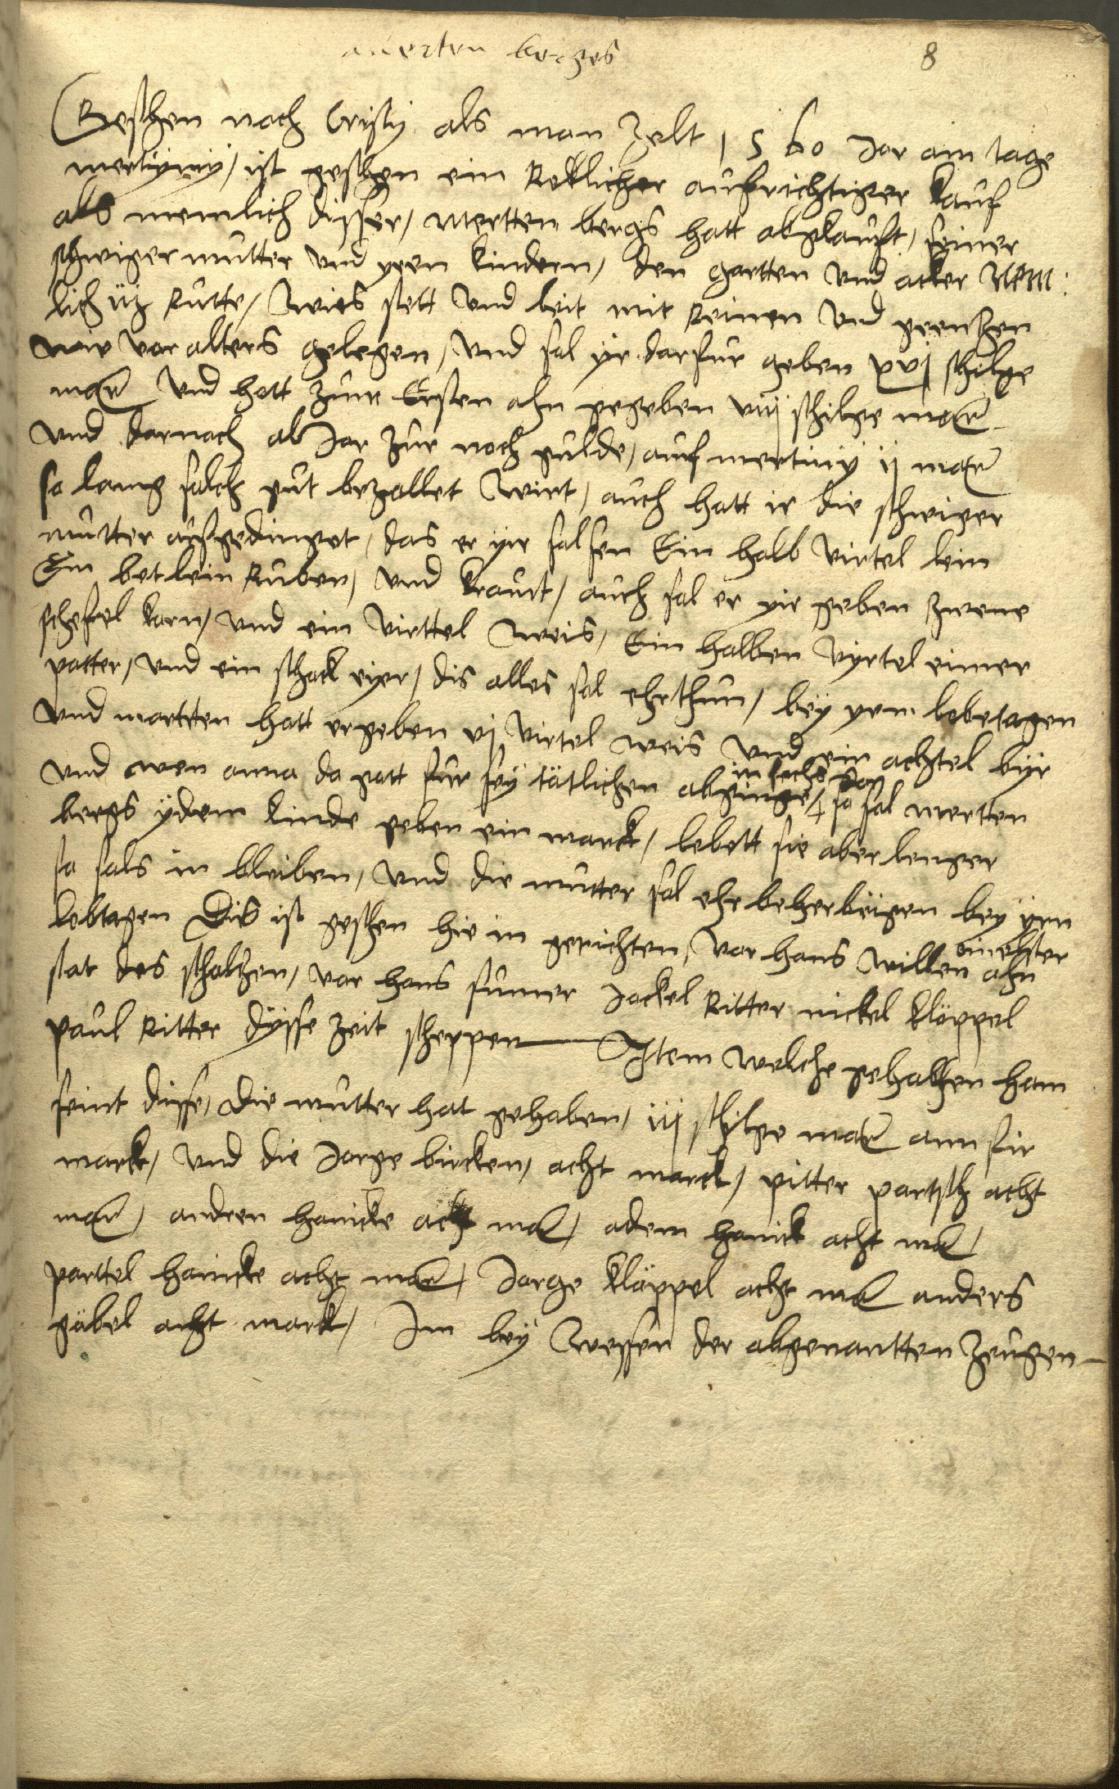 merten berges
8
Geschen nach Cristÿ als man Zelt 1560 Jar am tage
mertÿnÿ, ist geschen ein Redlicher aufrichtiger kauf
als nemlich disser, mertten bergs hatt abgkauft, seiner
schwiger mutter vnd yren kindern, den gartten vnd acker Nem:
lich Rutte, wies stett vnd leit mit Reinen vnd grentzen
vor alters gelegen, vnd sal ÿr darfur geben xvj schilge
mar vnd hatt zum Ersten ahn gegeben viij schilge mar
vnd darnach al Jar zur noch gulde, auf mertinÿ ij mar
so lang solch gut bezallet wirt, auch hatt ir die schwiger
mutter ausgedinget, das er ÿir sal sen Ein halb virtel lein
Ein betlein Ruben, vnd kraut, auch sal er yir geben zwene
scheffel korn, vnd ein virttel weis, Ein halben vyrtel eimer
potter, vnd ein schock eÿer, dis alles sal ehr thun, beÿ yrm lebetagen
vnd mertten hatt ergeben vj virtel weis vnd ein achtel bÿr
vnd wen anna da gott fur seÿ tätlichen abginge in sechs Jar so sal merten
bergs ÿdem kinde geben ein marck, lebett sie aber lenger
so sals in bleiben, vnd die mutter sal ehr beherbrigen beÿ ÿrm
lebtagen Dis ist geschen hie in gerichten, vor hans willen eineltster ahn
stat des scholtzen, vor hans sumer Jackel Ritter nickel klöppel
paul Ritter dÿsse zeit scheppen Item welche gehaben ham
seint disse, die mutter hat gehaben, iij schilge mar ann fir
marck, vnd die Jorge bircken, acht marck, pitter partsch acht
mar, andres hanicke acht mar, adem hanick acht mar,
parttel hanicke acht mar, Jorge klöppel acht mar anders
göbel acht mark, Im beÿ wessen der abgenantten zeugen